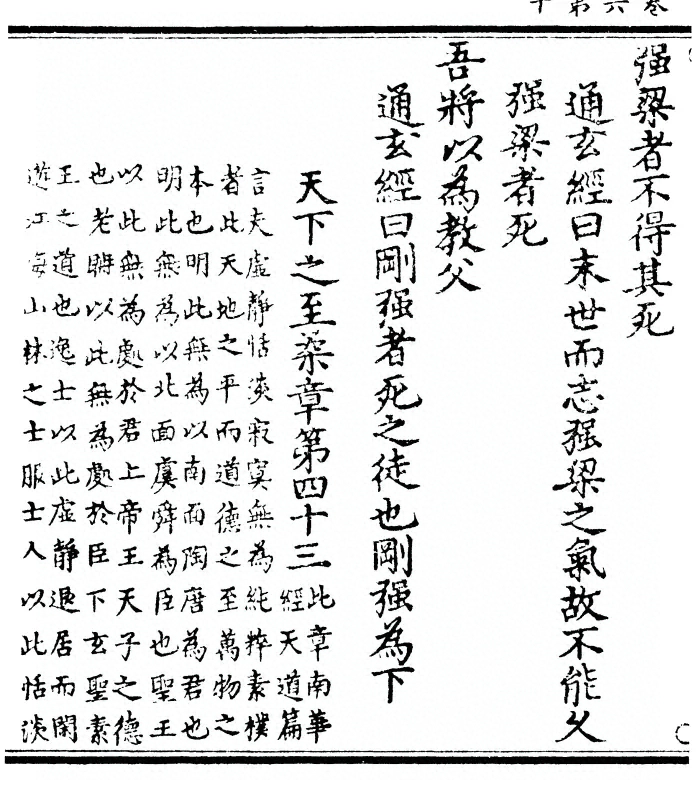 卷六第十
强梁者不得其死
通玄經曰末世而志强梁之氣故不能久
强梁者死
吾將以為教父
通玄經曰剛强者死之徒也剛强為下
天下之至柔章第四十三
此章南華
經天道篇
言夫虛靜恬淡寂寞無為純粹素樸
者此天地之平而道德之至萬物之
本也明此無為以南面陶唐為君也
明此無為以北面虞舜為臣也聖王
以此無為處於君上帝王天子之德
也老聃以此無為處於臣下玄聖素
王之道也逸士以此虛靜退居而閑
遊江海山林之士服士人以此恬淡